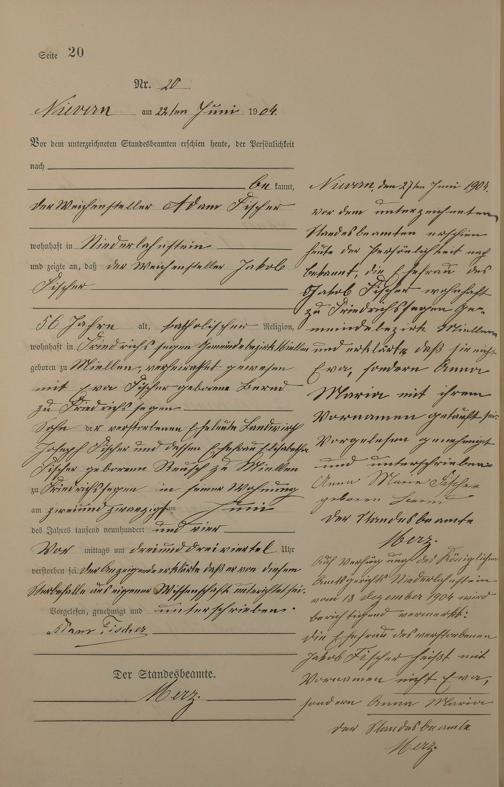 Seite 20
Nr. 20
Nievern am 22ten Juni 1904.
Vor dem unterzeichneten Standesbeamten erschien heute, der Persönlichkeit
nach
bekannt,
der Weichensteller Adam Fischer
wohnhaft in Niederlahnstein
und zeigte an, daß der Weichensteller Jakob
Fischer
56 Jahre alt, katholischer Religion,
wohnhaft in Friedrichssegen Gemeindebezirk Miellen
geboren zu Miellen, verheirathet gewesen
mit Eva Fischer geborene
zu Friedrichssegen
Sohn der verstorbenen Eheleute Landwirth
Joseph Fischer und dessen Ehefrau Elisabetha
Fischer geborenen zu Miellen
zu Friedrichssegen in seiner Wohnung
am zweiundzwanzigsten Juni
des Jahres tausend neunhundert und vier
Vor mittags um dreiunddreiviertel Uhr
verstorben sei. Der Anzeigende erklärte daß er von diesem
Sterbefalle aus eigener Wissenschaft unterrichtet sei.
Vorgelesen, genehmigt und unterschrieben.
Adam Fischer
Der Standesbeamte.
Merz.
Nievern, den 27ten Juni 1904.
vor dem unterzeichneten
Standesbeamten erschien
heute der Persönlichkeit nach
bekannt, die Ehefrau des
Jakob Fischer wohnhaft
zu Friedrichssegen Ge-
meindebezirk Miellen
und erklärte daß sie nicht
Eva, sondern Anna
Maria mit ihrem
Vornamen getauft sei.
Vorgelesen genehmigt
und unterschrieben
Anna Maria Fischer
geboren
Der Standesbeamte
Merz.
Auf Verfügung des Königlichen
Amtsgerichts Niederlahnstein
vom 13 Dezember 1904 wird
berichtigend vermerkt:
Die Ehefrau des verstorbenen
Jakob Fischer heißt mit
Vornamen nicht Eva,
sondern Anna Maria
Der Standesbeamte
Merz.